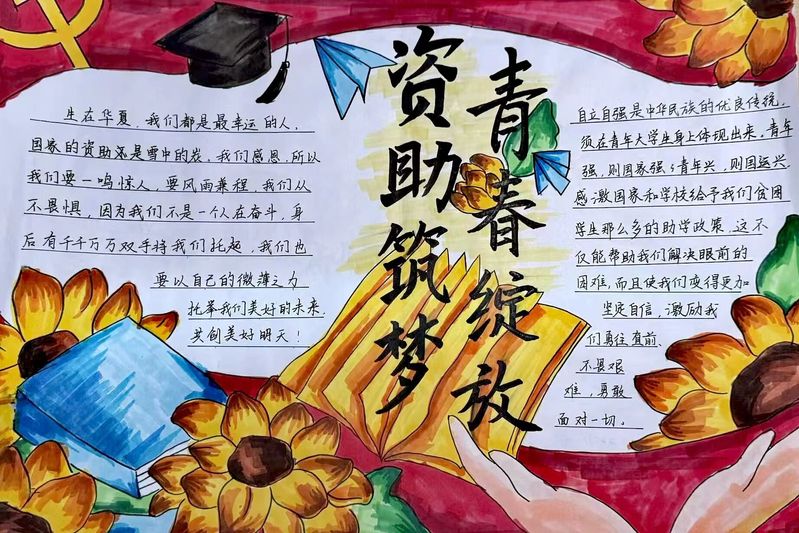 资助筑梦
青春绽放
生在华夏,我们都是最幸运的人,
国家的资助添是雪中的炭,我们感恩,所以
我们要一鸣惊人,要风雨兼程,我们从
不畏惧,因为我们不是一个人在奋斗,身
后有千千万万双手将我们托起,我们也
要以自己的微薄之力
托举我们美好的未来.
共创美好明天!
自立自强是中华民族的优良传统,
须在青年大学生身上体现出来,青年
强,则国家强;青年兴,则国运兴
感激国家和学校给予我们贫困
学生那么多的助学政策.这不
仅能帮助我们解决眼前的
困难,而且使我们变得更加
坚定自信,激励我
们勇往直前.
不畏艰
难,勇敢
面对一切。